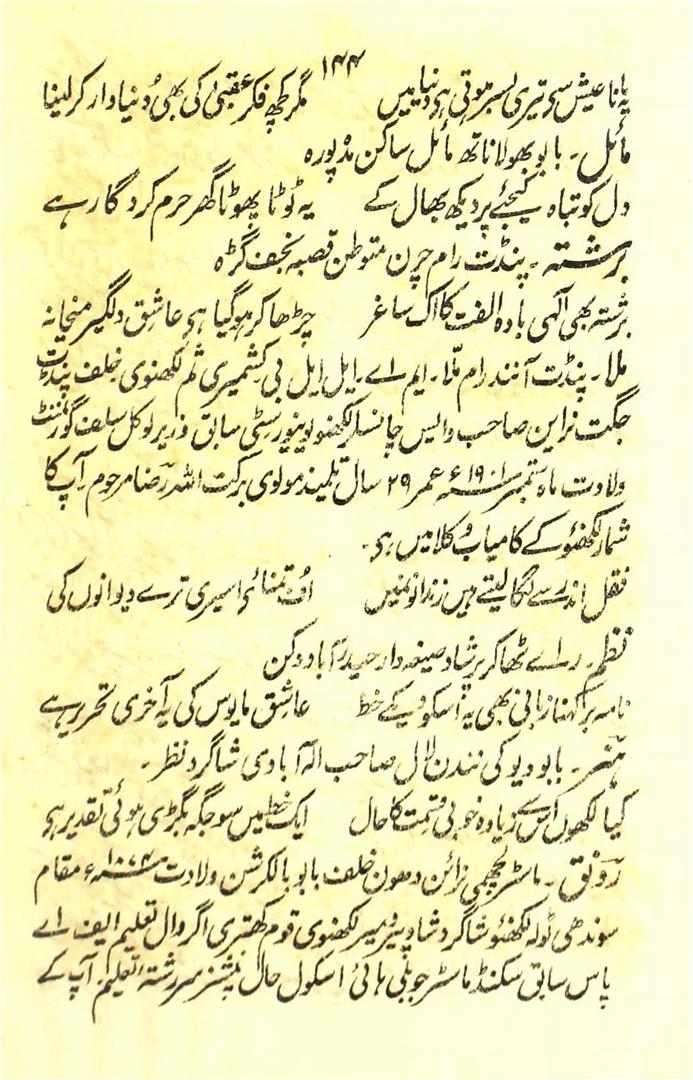 ۱۴۴
یہ مانا عیش سی تیری بسر ہوتی ہی دنیا میں    مگر کچھ فکر عقبیٰ کی بھی دُنیا دار کر لینا
مائل۔ بابو بھولا ناتھ مائل ساکن مدپورہ
دل کو تباہ کیجئے پر دیکھ بھال کے    یہ ٹوٹا پھوٹا گھر حرم کردگار ہے
برشتہ۔ پنڈت رام چرن متوطن قصبہ نجف گڑہ
برشتہ بھی آلہی بادہ الفت کا اک ساغر    چڑھا کر ہو گیا ہی عاشق دلگیر میخانہ
ملا۔ پنڈت آنند رام ملّا۔ ایم اے۔ ایل ایل بی کشمیری ثم لکھنوی خلف پنڈت
جگت نراین صاحب وایس چانسلر لکھنو یونیورسٹی سابق وزیر لوکل سلف گورنمنٹ
ولادت ماہ ستمبر ۱۹۰۱ء عمر ۲۹ سال تلمیذ مولوی برکت اللہ رضا مرحوم آپ کا
شمار لکھنؤ کے کامیاب وکلا میں ہی۔
قفل اندر سے لگا لیتے ہیں زندانونمیں    اُف تمنائے اسیری ترے دیوانوں کی
نظم۔ راے ٹھاکر پرشاد صیغہ دار حیدرآباد دکن
نامہ بر کہنا زبانی بھی یہ اسکو دیکے خط    عاشق مایوس کی یہ آخری تحریر ہے
ہنر۔ بابو دیو کی نندن لال صاحب الہ آبادی شاگرد نظر۔
کیا لکھوں اس سے زیادہ خوبی قسمت کا حال    ایک خط میں سو جگہ بگڑی ہوئی تقدیر ہی
رونق۔ ماسٹر لچھمی نرائن دھون خلف بابو بالکرشن ولادت ۱۸۷۴ء مقام
سوندھی ٹولہ لکھنؤ شاگرد شاد پیرو میر لکھنوی قوم کھتری اگروال تعلیم ایف اے
پاس سابق سکنڈ ماسٹر جوبلی ہائی اسکول حال پنشنر سررشتہ تعلیم آپ کے